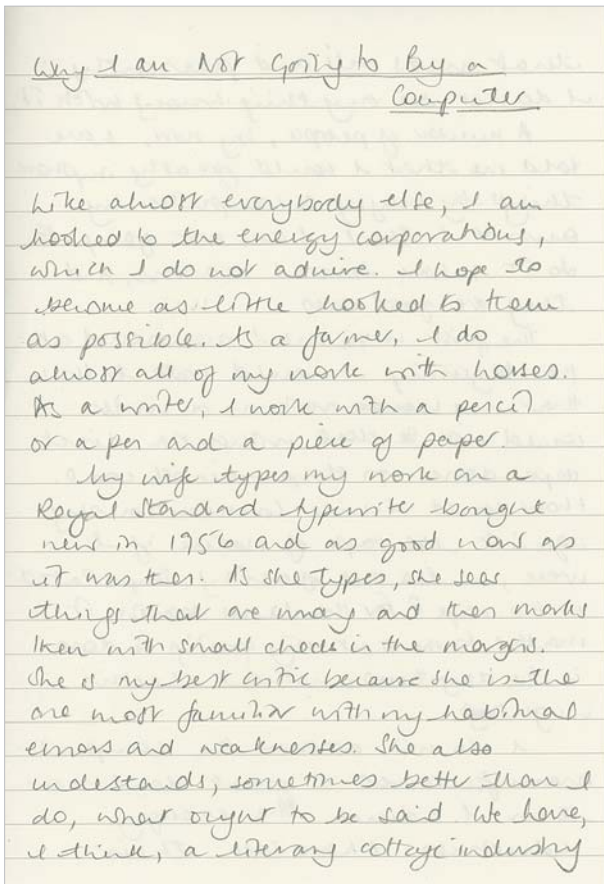 Why I am Not Going to Buy a
Computer
Like almost everybody else, I am
hooked to the energy corporations,
which I do not admire. I hope to
become as little hooked to them
as possible. As a farmer, I do
almost all of my work with horses.
As a writer, I work with a pencil
or a pen and a piece of paper.
My wife types my work on a
Royal Standard typewriter bought
new in 1956 and as good now as
it was then. As she types, she sees
things that are wrong and then marks
them with small checks in the margins.
She is my best critic because she is the
one most familiar with my habitual
errors and weaknesses. She also
undestands, sometimes better than I
do, what ought to be said. We have,
I think, a literary cottage industry